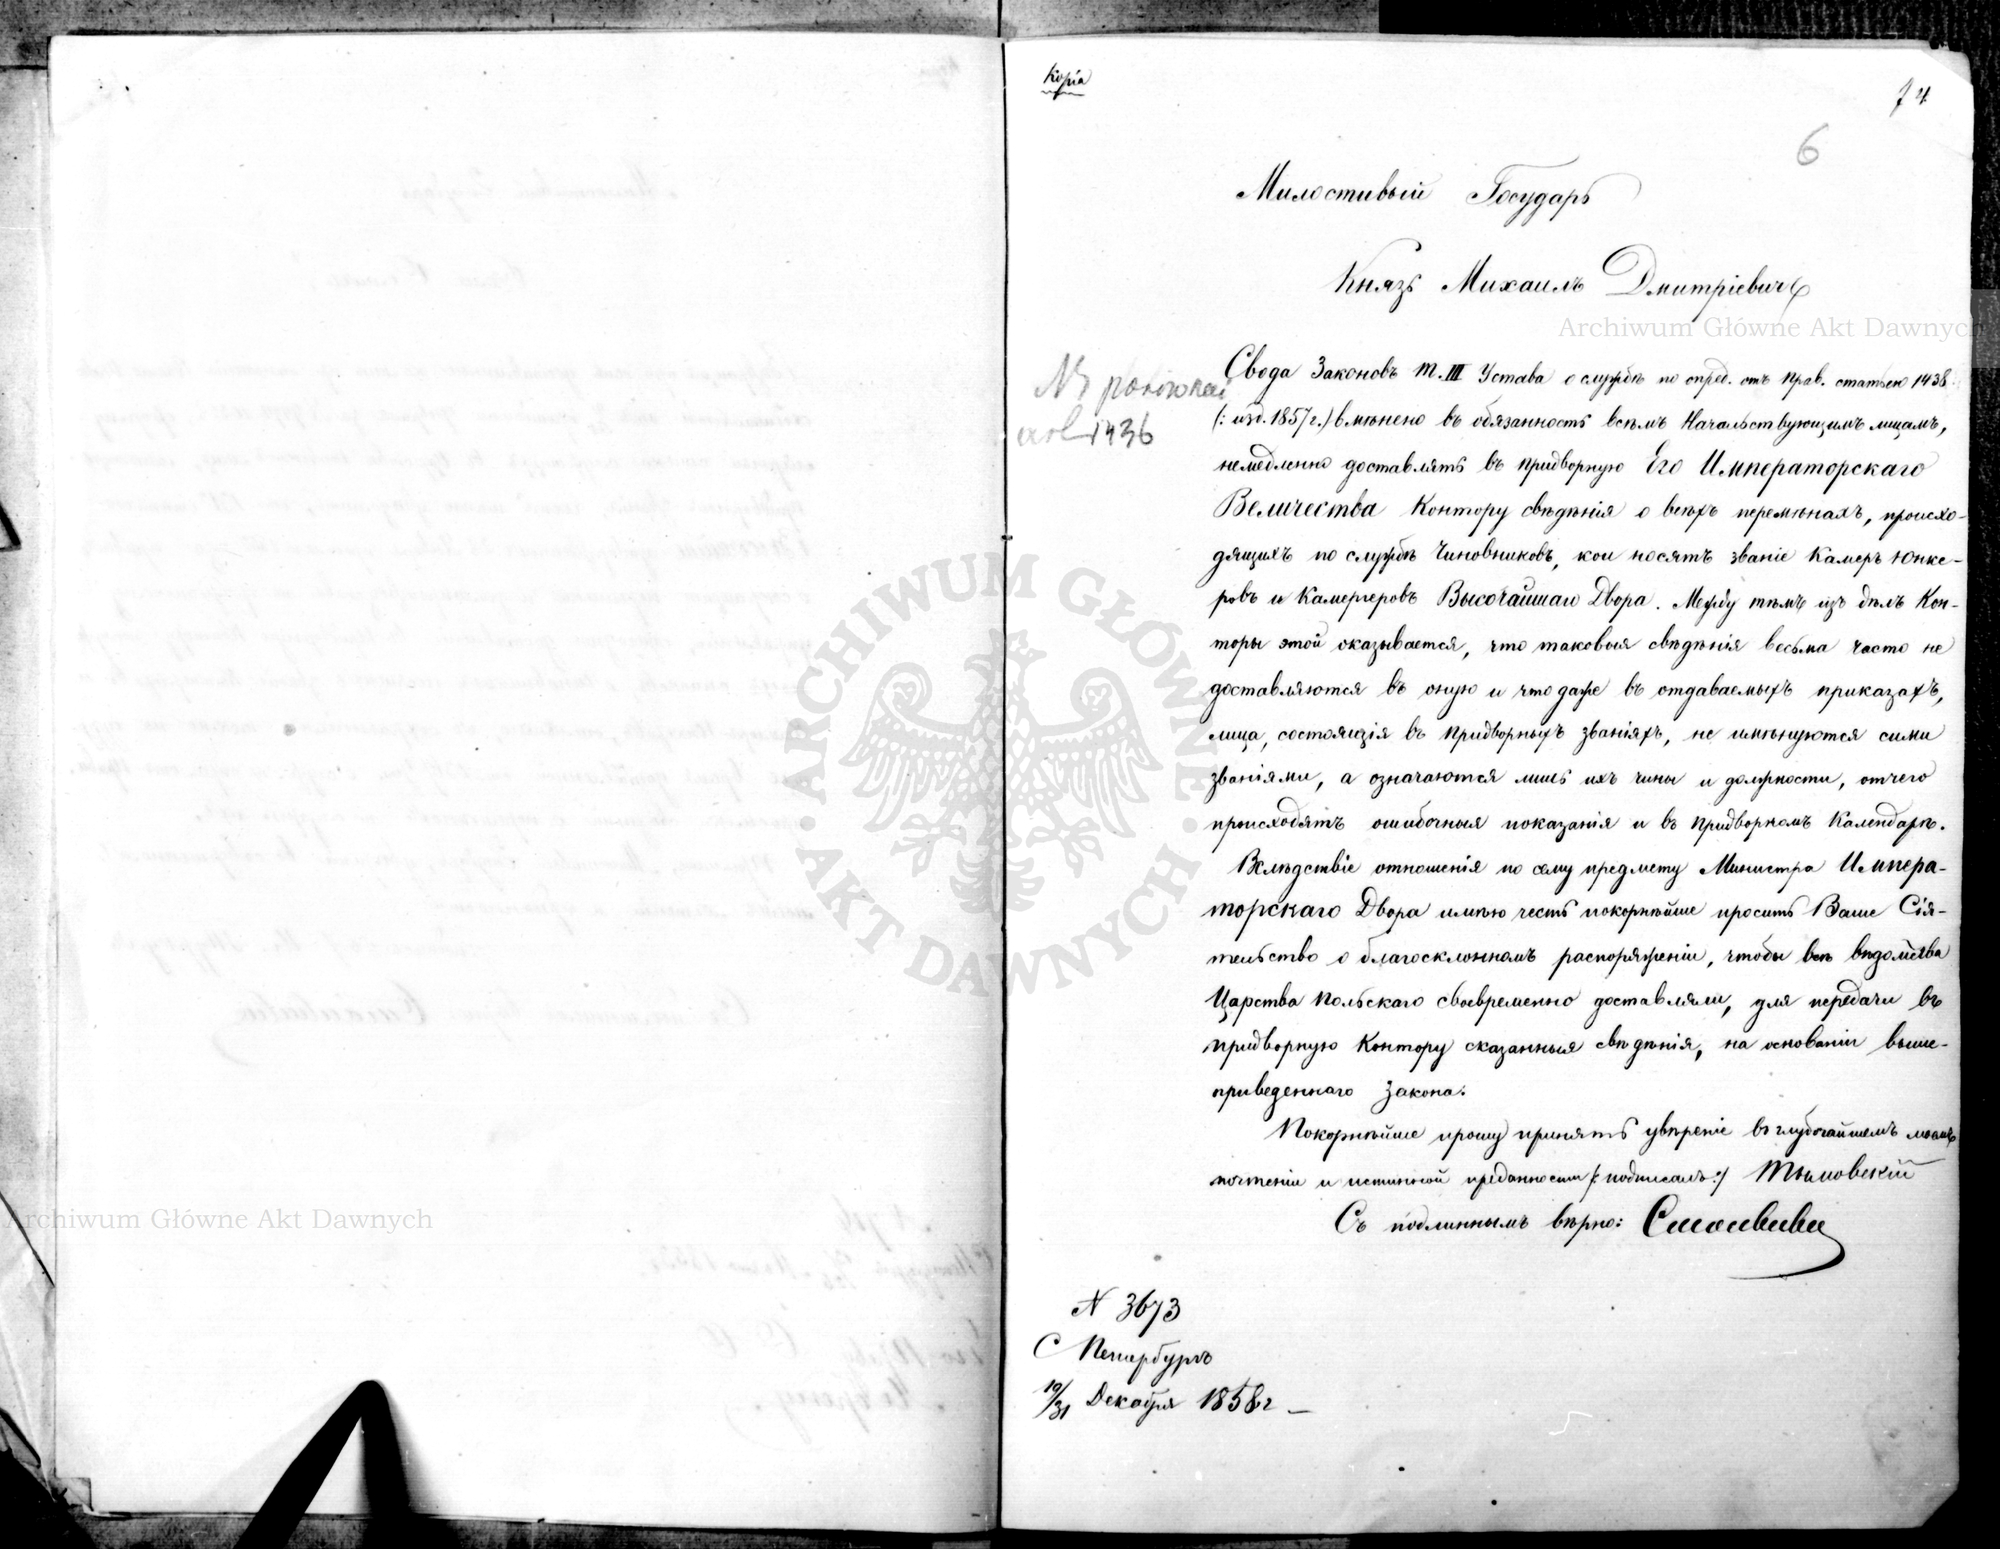 Копія
74
6
Милостивый Государь
Князь Михаилъ Дмитріевичъ
Свода Законовъ т. III Устава о службѣ по опред. отъ Прав. статьею 1438
(: изд. 1857 г.) вмѣнено въ обязанность всѣмъ Начальствующимъ лицамъ,
немедленно доставлять въ придворную Его Императорскаго
Величества Контору свѣдѣнія о всѣхъ перемѣнахъ, происхо-
дящихъ по службѣ Чиновниковъ, кои носятъ званіе Камеръ Юнке-
ровъ и Камергеровъ Высочайшаго Двора. Между тѣмъ изъ дѣлъ Кон-
торы этой оказывается, что таковыя свѣдѣнія весьма часто не
доставляются въ оную и что даже въ отдаваемыхъ приказахъ,
лица, состоящія въ Придворныхъ званіяхъ, не имѣнуются сими
званіями, а означаются лишь ихъ чины и должности, отчего
происходятъ ошибочныя показанія и въ Придворномъ Календарѣ.
Вслѣдствіе отношенія по сему предмету Министра Импера-
торскаго Двора имѣю честь покорнѣйше просить Ваше Сія-
тельство о благосклонномъ распоряженіи, чтобы всѣ вѣдомства
Царства Польскаго своевременно доставляли, для передачи въ
придворную Контору сказанныя свѣдѣнія, на основаніи выше-
приведеннаго Закона.
Покорнѣйше прошу принять увѣреніе въ глубочайшемъ моемъ
почтеніи и истинной преданности (: подписалъ :) Тымовскій
Съ подлиннымъ вѣрно:
№ 1436
N 3673
С Петербургъ
19/31 Декабря 1858 г
Archiwum Główne Akt Dawnych
Archiwum Główne Akt Dawnych
ARCHIWUM GŁÓWNE · AKT DAWNYCH ·